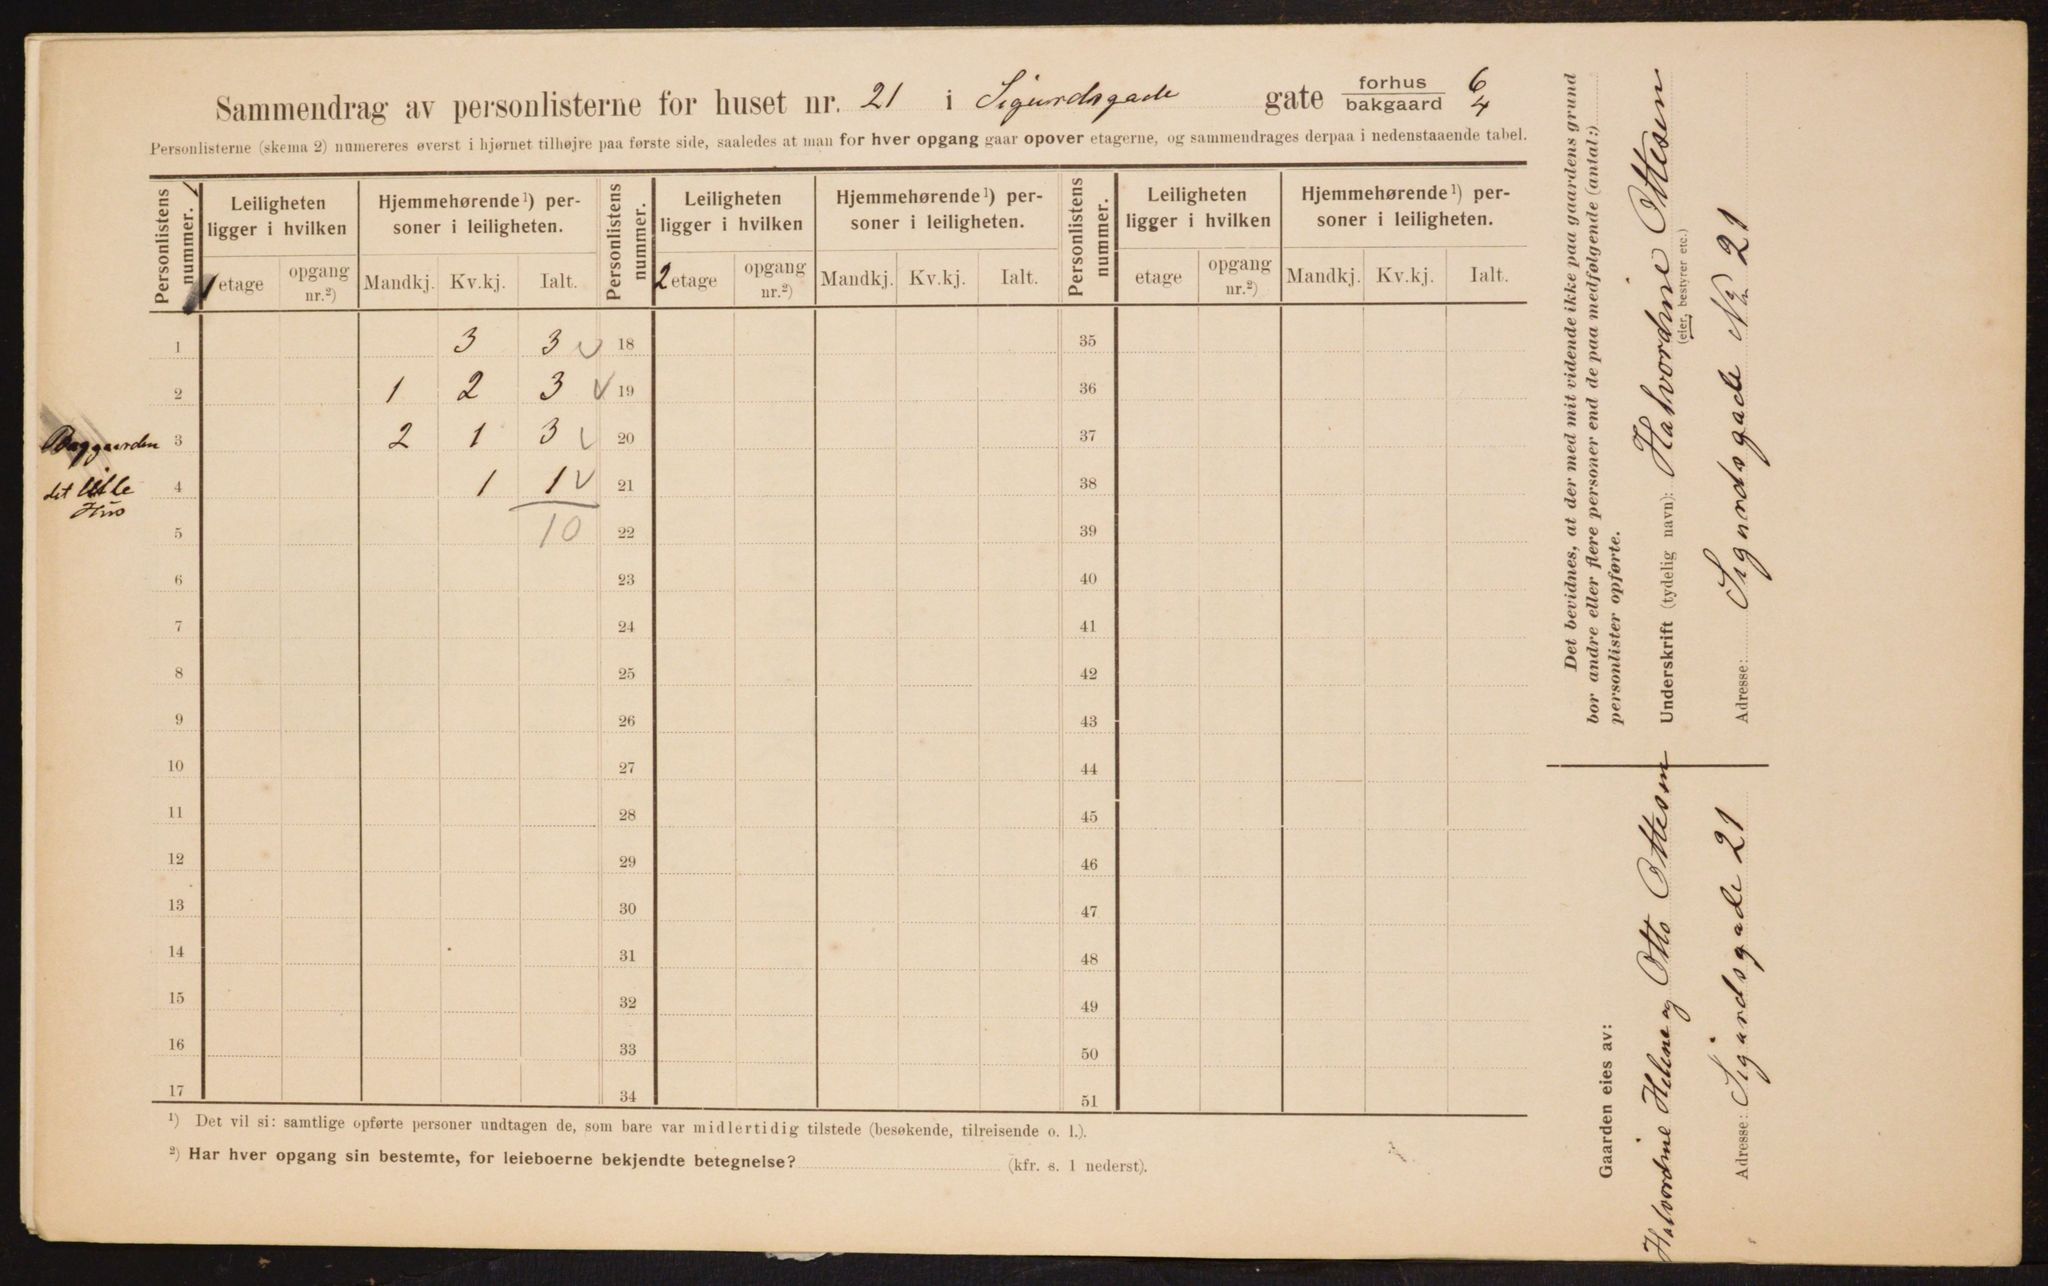 Sammendrag av personlisterne for huset nr. 21 i Sigurdsgade gate forhus 6
bakgaard 4
Personlisterne (skema 2) numereres øverst i hjørnet tilhøjre paa første side, saaledes at man for hver opgang gaar opover etagerne, og sammendrages derpaa i nedenstaaende tabel.
Personlistens nummer. Leiligheten ligger i hvilken Hjemmehørende ¹) personer i leiligheten. Personlistens nummer. Leiligheten ligger i hvilken Hjemmehørende ¹) personer i leiligheten. Personlistens nummer. Leiligheten ligger i hvilken Hjemmehørende ¹) personer i leiligheten.
1 etage opgang nr.²) Mandkj. Kv.kj. Ialt. 2 etage opgang nr.²) Mandkj. Kv.kj. Ialt. etage opgang nr.²) Mandkj. Kv.kj. Ialt.
1 3 3 18 35
2 1 2 3 19 36
Baggaarden 3 2 1 3 20 37
det lille 4 1 1 21 38
Hus
5 10 22 39
6 23 40
7 24 41
8 25 42
9 26 43
10 27 44
11 28 45
12 29 46
13 30 47
14 31 48
15 32 49
16 33 50
17 34 51
¹) Det vil si: samtlige opførte personer undtagen de, som bare var midlertidig tilstede (besøkende, tilreisende o. l.).
²) Har hver opgang sin bestemte, for leieboerne bekjendte betegnelse? (kfr. s. 1 nederst).
Det bevidnes, at der med mit vidende ikke paa gaardens grund
bor andre eller flere personer end de paa medfølgende (antal:)
personlister opførte.
Underskrift (tydelig navn): Halvordine Ottesen
(eier, bestyrer etc.)
Adresse: Sigurdsgade No 21
Gaarden eies av:
Halvordine Helene og Otto Ottesen
Adresse: Sigurdsgade 21